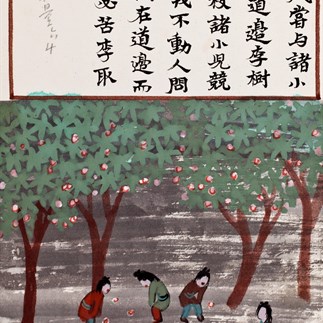 嘗与諸小
道邊李樹
諸小児競
不動人問
在道邊而
必苦李取